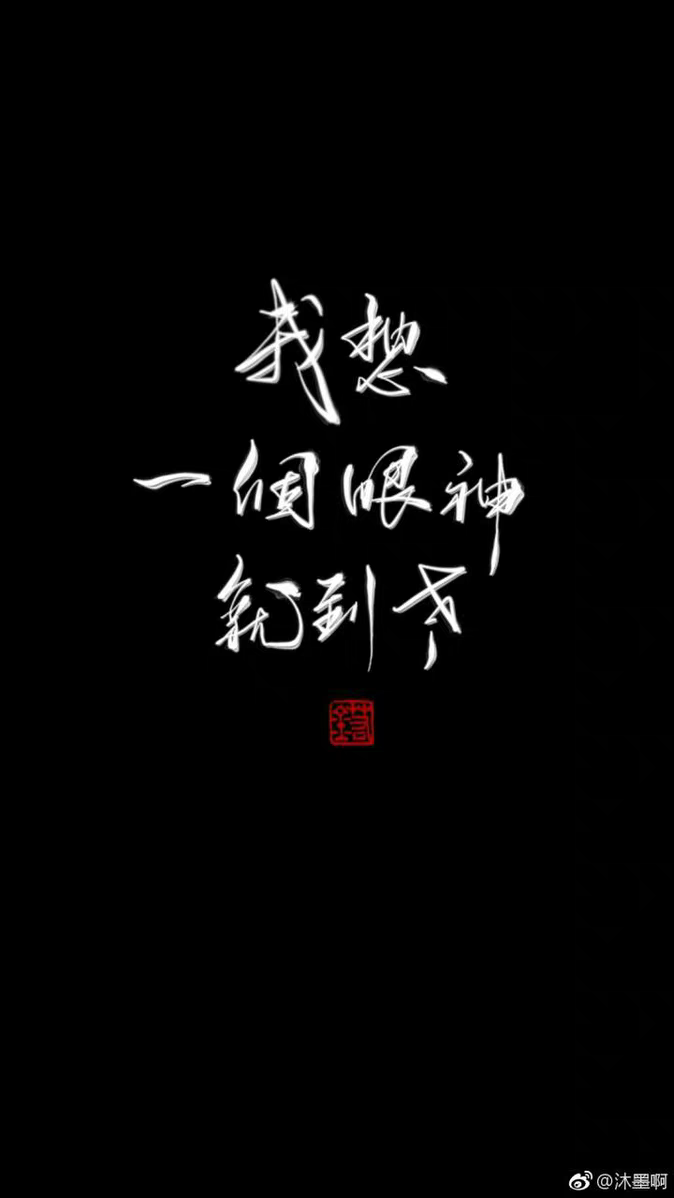 我想
一個眼神
就到老
@沐墨啊